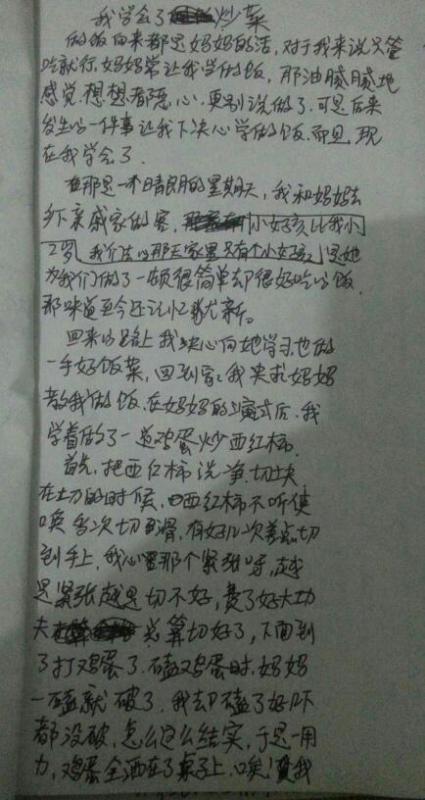 我学会了炒菜
做饭向来都是妈妈的活,对于我来说只管
吃就行,妈妈常让我学做饭,那油腻腻地
感觉,想想都恶心,更别说做了.可是后来
发生的一件事让我下决心学做饭.而且,现
在我学会了.
在那是一个晴朗的星期天,我和妈妈去
乡下亲戚家做客,小女孩比我小
2岁 我们去的那天家里只有个小女孩 是她
为我们做了一顿很简单却很好吃的饭.
那味道至今还记忆犹新。
回来的路上我决心向她学习,也做
一手好饭菜,回到家,我央求妈妈
教我做饭.在妈妈的演式后,我
学着做了一道鸡蛋炒西红柿.
首先,把西红柿洗净.切块
在切的时候,西红柿不听使
唤 每次切都滑,有好几次差点切
到手上,我心里那个紧张呀,越
是紧张越是切不好,费了好大功
夫 总算切好了,下面到
了打鸡蛋了.磕鸡蛋时,妈妈
一磕就破了.我却磕了好几下
都没破,怎么这么结实,于是一用
力,鸡蛋全洒在了桌子上,唉!